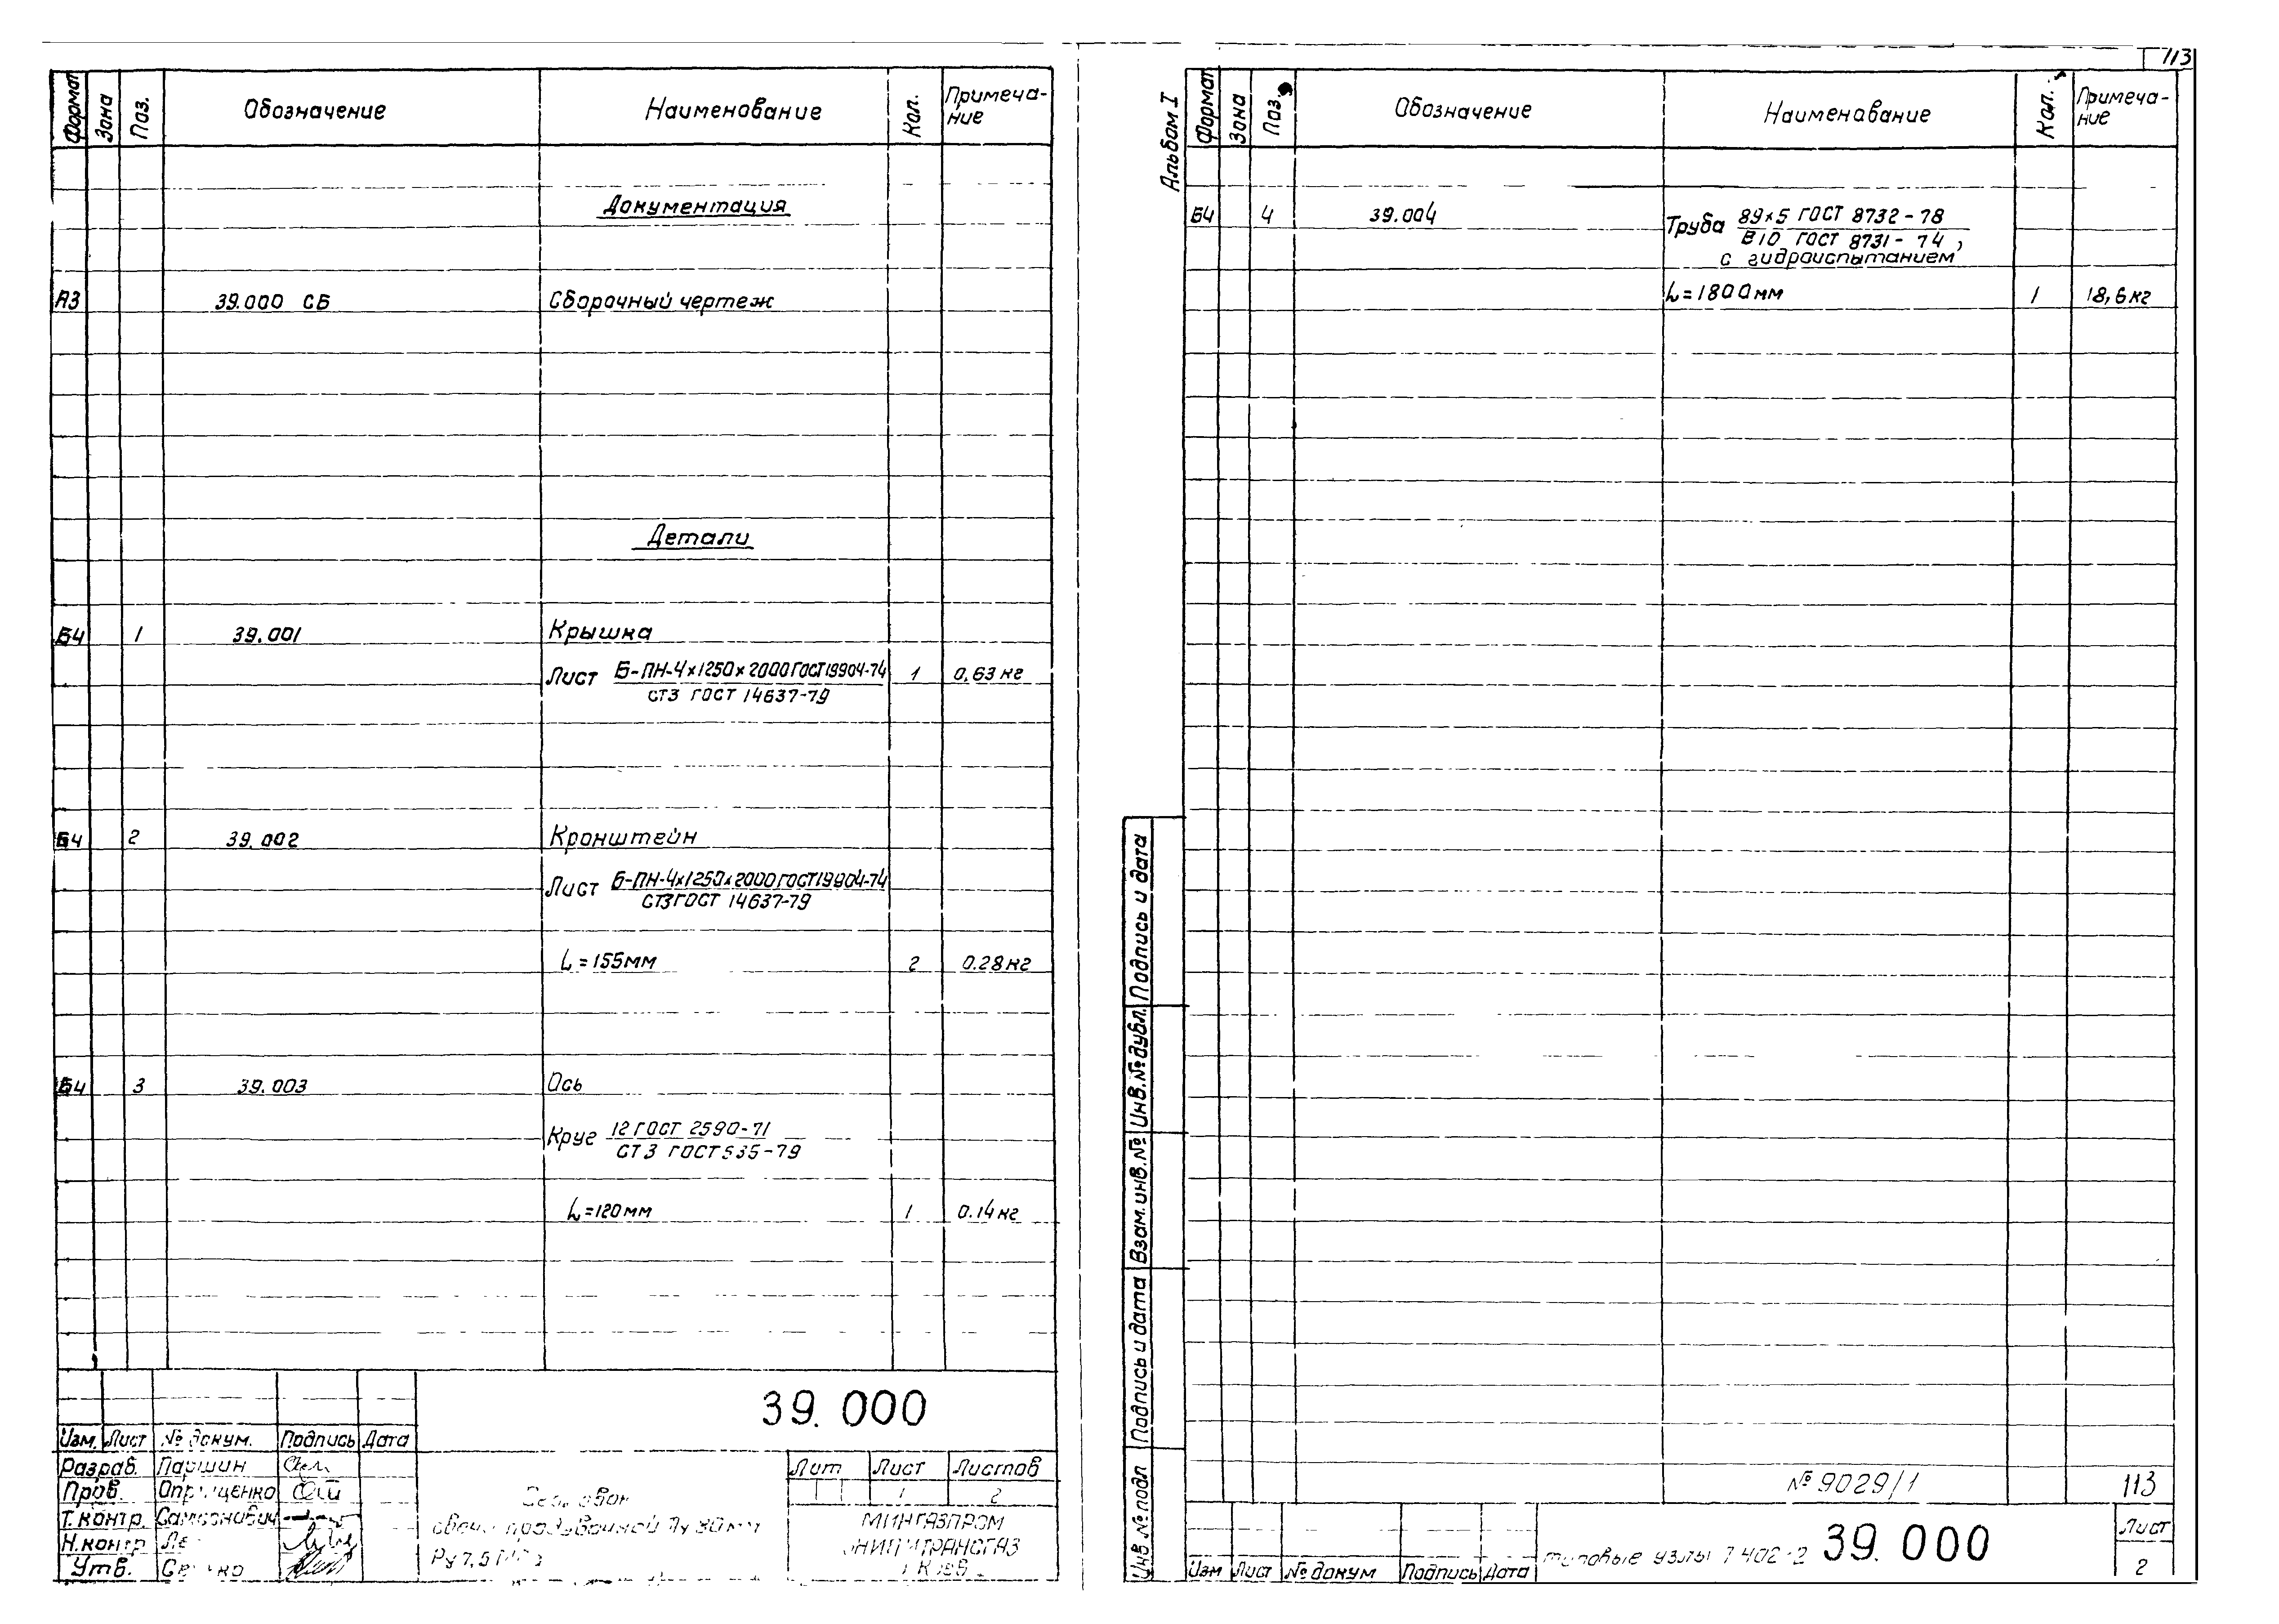 Формат Зона Поз. Обозначение Наименование Кол. Примеча-
ние
Документация
А3 39.000 СБ Сборочный чертеж
Детали
Б4 1 39.001 Крышка
Лист Б-ПН-4х1250х2000 ГОСТ 19904-74 1 0,63 кг
СТ3 ГОСТ 14637-79
Б4 2 39.002 Кронштейн
Лист Б-ПН-4х1250х2000 ГОСТ 19904-74
СТ3 ГОСТ 14637-79
L=155мм 2 0.28 кг
Б4 3 39.003 Ось
Круг 12 ГОСТ 2590-71
СТ3 ГОСТ 535-79
L=120мм 1 0.14 кг
39.000
Изм. Лист № докум. Подпись Дата
Разраб. Паршин
Пров.
Т. контр. Самсонович
Н. контр
Утв.
продувочной Ду 80мм
Ру 7,5
Лит Лист Листов
1 2
МИНГАЗПРОМ
г. Киев
113
Альбом I
Формат Зона Поз. Обозначение Наименование Кол. Примеча-
ние
Б4 4 39.004 Труба 89х5 ГОСТ 8732-78
В10 ГОСТ 8731-74,
с гидроиспытанием
L=1800мм 1 18,6 кг
Инв № подл Подпись и дата Взам. инв. № Инв. № дубл. Подпись и дата
№ 9029/1 113
Изм Лист № докум Подпись Дата
типовые узлы 39.000
Лист
2